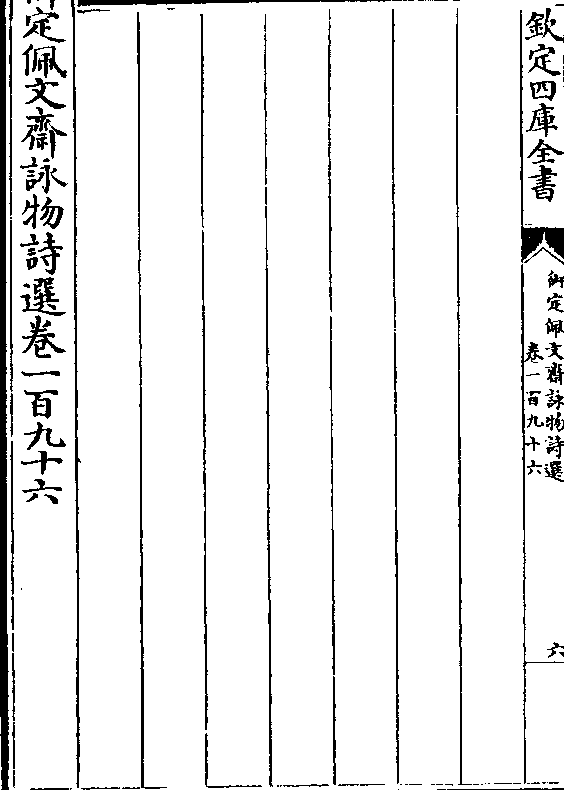 欽定四庫全書
御定佩文齋詠物詩選
卷一百九十六
六
御定佩文齋詠物詩選卷一百九十六